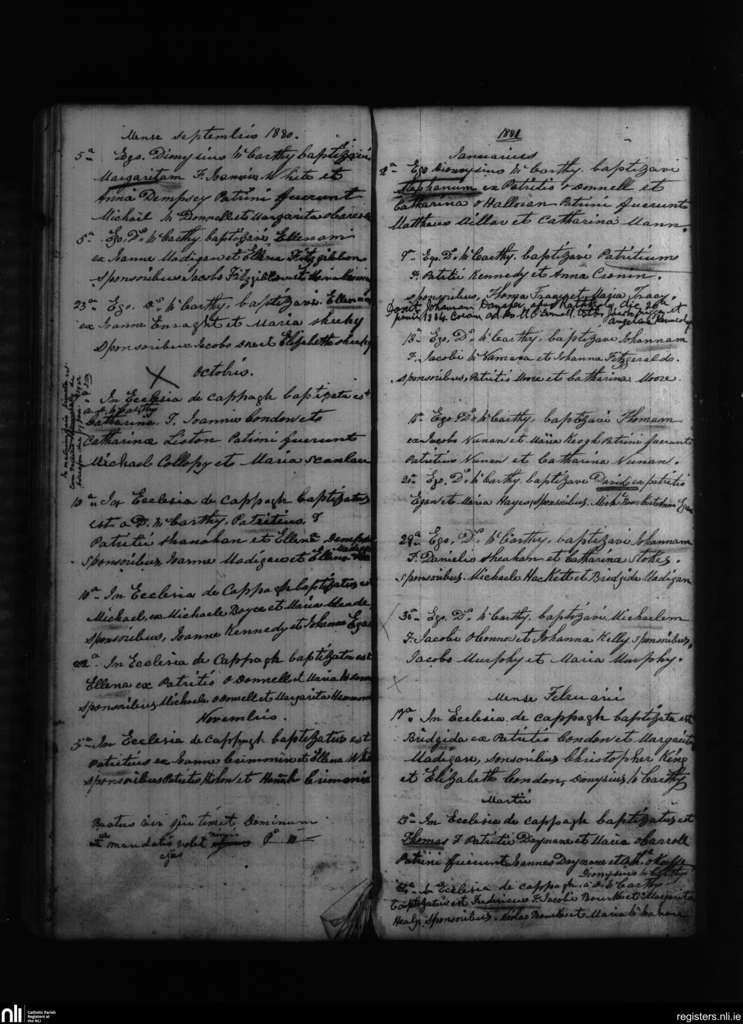 Mense Septembris 1880.
5a Ego. Dimysius McCarthy baptizavi
Margaritam F. Joannis White et
Anna Dempsey Patrini fuerunt
Michail McDonnell et Margarita
5a Ego. Ds. McCarthy baptizavi Ellenam
ex Joanne Madigan et Ellena Fitzgibbon
Sponsoribus Jacobo Fitzgibbon et
23a Ego. Ds. McCarthy, baptizavi Ellenam
ex Joanne Enraght et Maria Sheehy
Sponsoribus Jacobo et Elizabeth Sheehy
Octobris.
In Ecclesia de Cappagh baptizata est
a D. McCarthy
Catharina F. Joannis Condon et
Catharina Liston Patrini fuerunt
Michael Collopy et Maria Scanlan
10a In Ecclesia de Cappagh baptizatus
est a D. McCarthy, Patritius F
Patritii Shanahan et Ellena Dempsey
Sponsoribus Joanne Madigan et Ellena
10a In Ecclesia de Cappagh baptizatus est
Michael, ex Michaele Boyce et Maria Meade
Sponsoribus, Joanne Kennedy et Johanna Egan
22a In Ecclesia de Cappagh baptizata est
Ellena ex Patritio O Donnell et Maria
Sponsoribus Michaele O Donnell et Margarita
Novembris.
5a In Ecclesia de Cappagh baptizatus est
Patritius ex Joanne Crimonin et Ellena
Sponsoribus Patritio et Honorah Crimonin
Beatus vir qui timet, Dominum.
mandatis volet nimis
ejus
1881
Januarius
2a Ego Dionysius McCarthy. baptizavi
Stephanum ex Patritio O Donnell et
Catharina O Halloran Patrini fuerunt
Matthaus Millar et Catharina Mann.
9a Ego. Ds. McCarthy. baptizavi Patritium
F. Patritii Kennedy et Anna Cronin.
Sponsoribus, Thoma Tracy et Maria Tracy.
Johanam Donegan apud Rathkeale die 26th
1884 Coram
Angela Kennedy
13a Ego, Ds. McCarthy, baptizavi Johannam
F. Jacobi McNamara et Johanna Fitzgerald.
Sponsoribus, Patritio Moore et Catharina Moore.
15a Ego Ds. McCarthy, baptizavi Thomam
ex Jacobo Nunan et Maria Keogh Patrini fuerunt
Patritius Nunan et Catharina Nunan.
25a Ego. Ds. McCarthy baptizavi David ex patritio
Egan et Maria Hayes, Sponsoribus, Mich Egan
29a Ego, Ds. McCarthy. baptizavi Johannam
F. Danielis Sheahan et Catharina Stokes.
Sponsoribus. Michaele Hackett et Bridgida Madigan
30a Ego. Ds. McCarthy, baptizavi Michaelem
F. Jacobi Oconnor et Johanna Kelly Sponsoribus,
Jacobo Murphy et Maria Murphy.
Mense Februarii
17a In Ecclesia de Cappagh baptizata est
Bridgida ex Patritio Condon et Margarita
Madigan, Sonsoribus Christopher King
et Elizabeth Condon, Donysius McCarthy
Martii
13a In Ecclesia de Cappagh baptizatus est
Thomas F. Patritii Doynane et Maria O Carroll
Patrini fuerunt Joannes Doynane et
Dionysius McCarthy
In Ecclesia de Cappagh a D. McCarthy
baptizatus est Fredericus F. Jacobi Bourke et Margarita
Healy. Sponsoribus Bourke et Maria McNamara
nli
Catholic Parish
Registers at
the NLI
registers.nli.ie